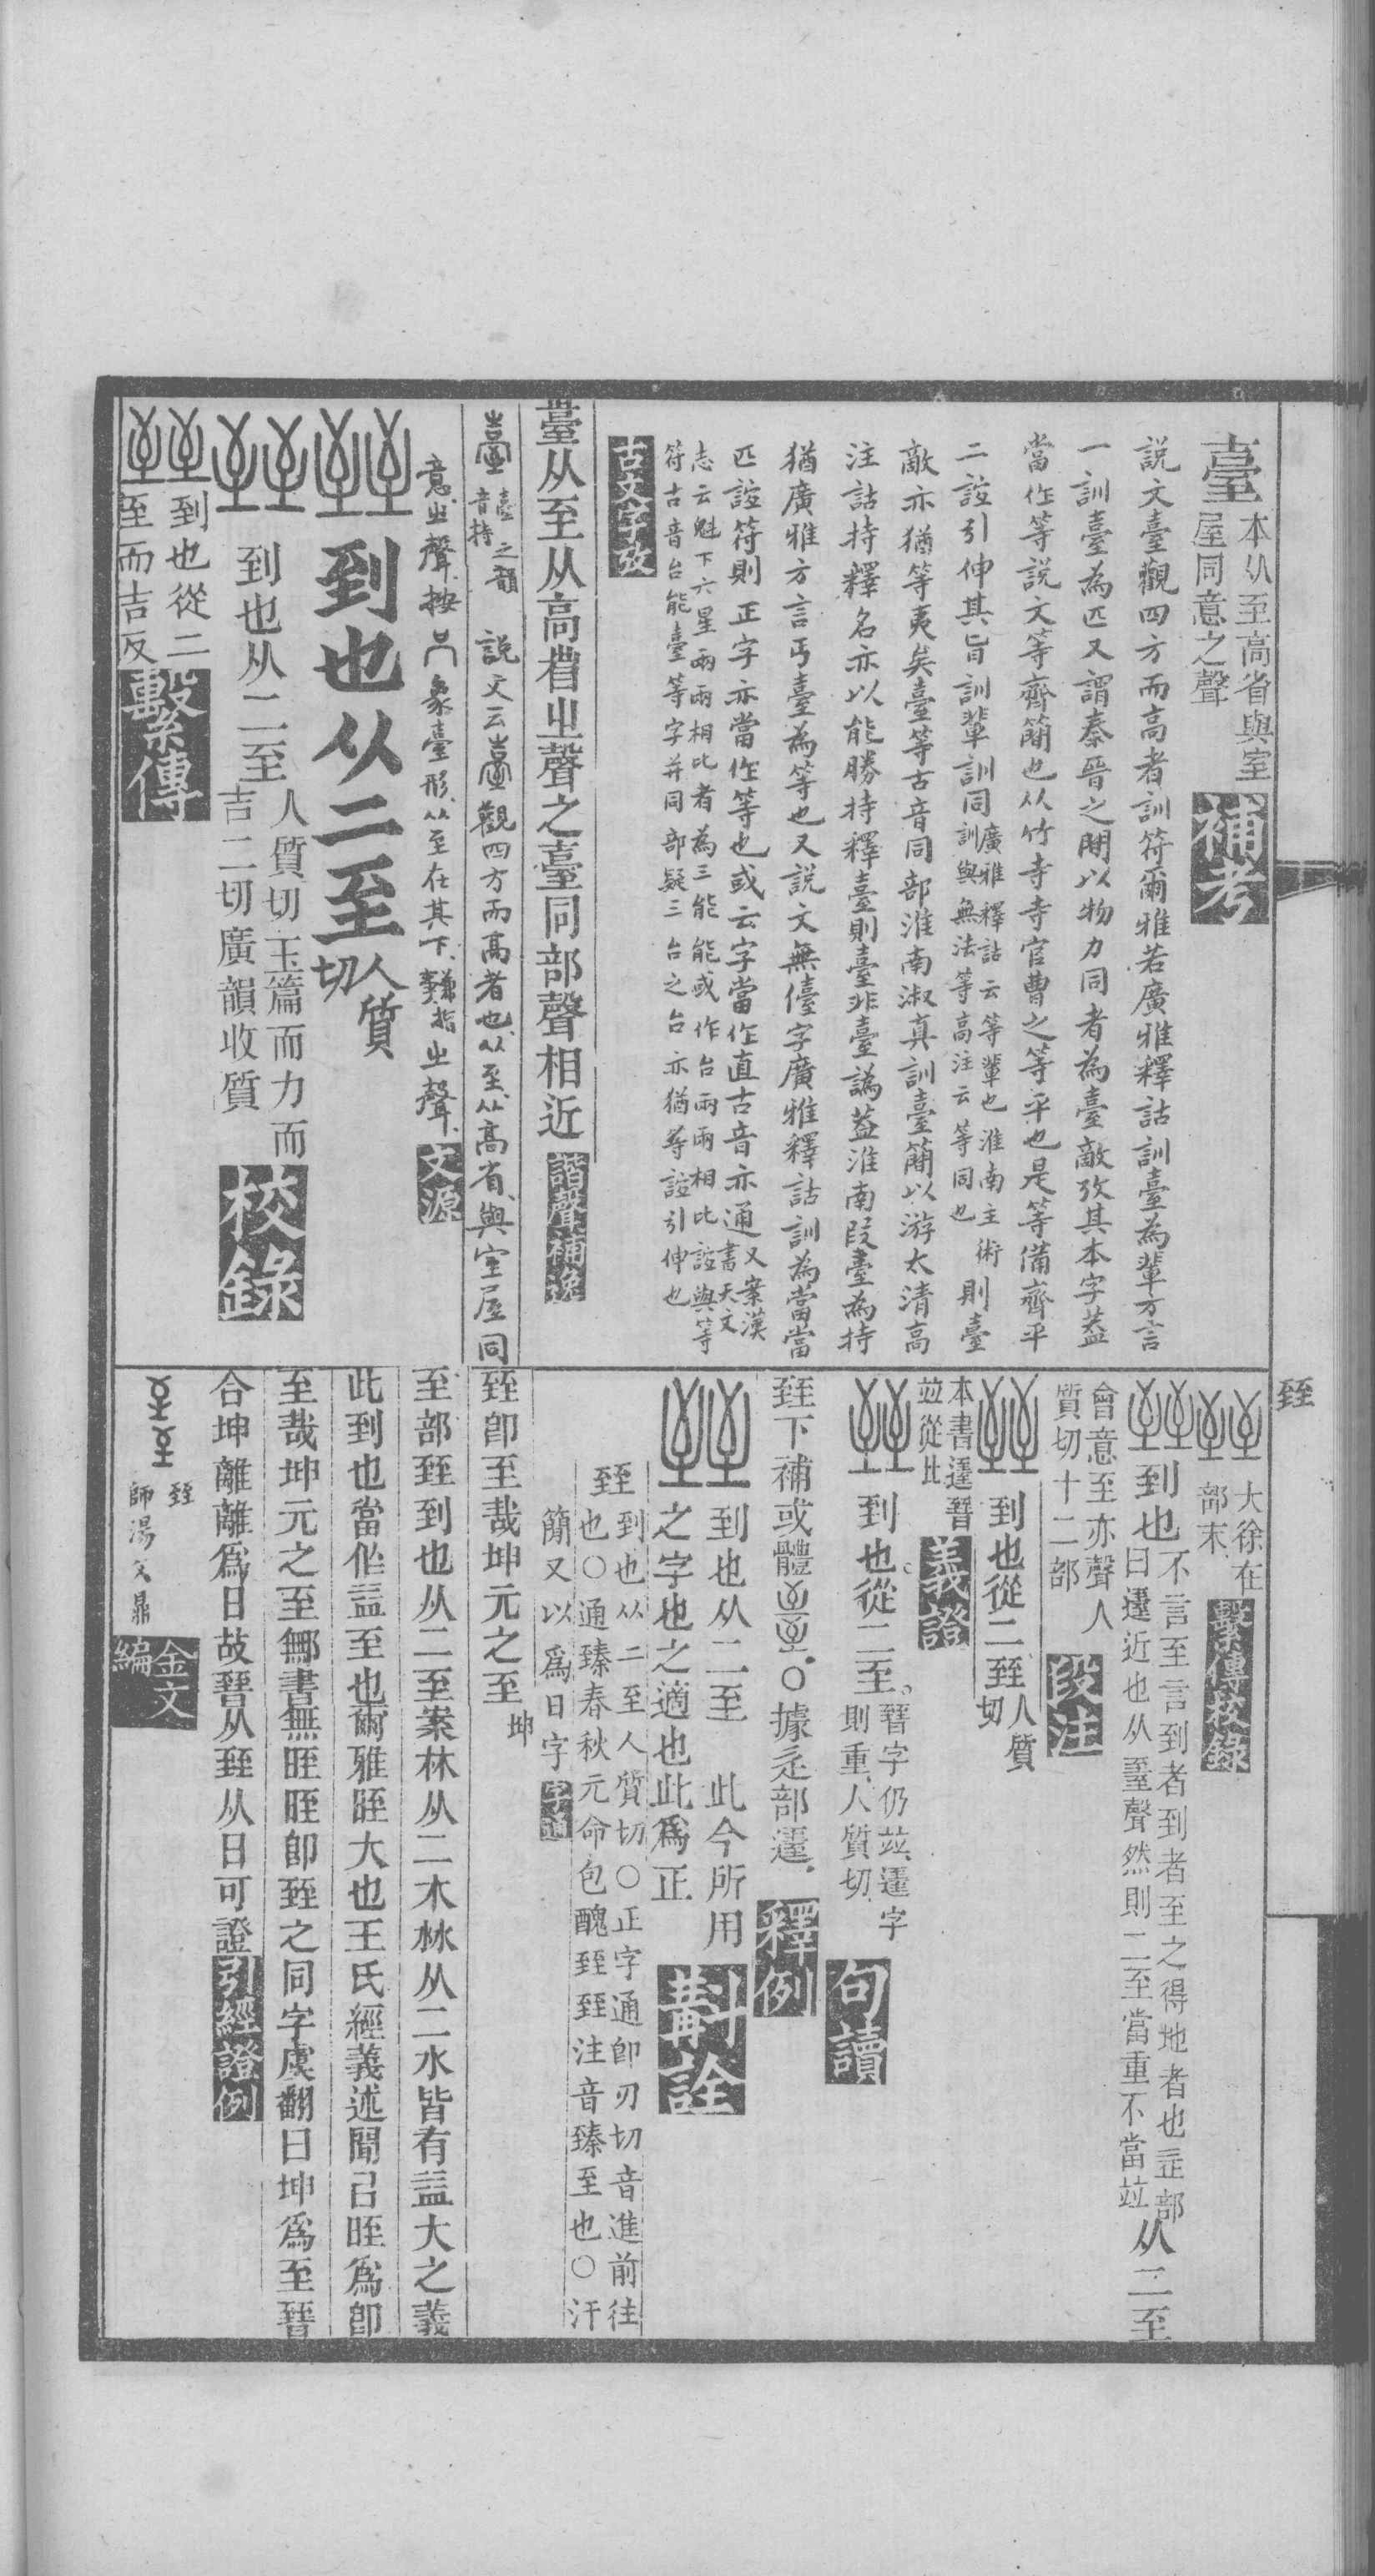 臺
本从至高省與室
屋同意之聲
補考
說文臺觀四方而高者訓符爾雅若廣雅釋詁訓臺為輩方言
一訓臺為匹又謂秦晉之閒以物力同者為臺敵攷其本字葢
當作等說文等齊簡也从竹寺寺官曹之等平也是等備齊平
二誼引伸其旨訓輩訓同
廣雅釋詁云等輩也淮南主術
訓與無法等高注云等同也
則臺
敵亦猶等夷矣臺等古音同部淮南淑真訓臺簡以游太清高
注詁持釋名亦以能勝持釋臺則臺非臺譌葢淮南叚臺為持
猶廣雅方言丐臺為等也又說文無儓字廣雅釋詁訓為當當
匹誼符則正字亦當作等也或云字當作直古音亦通
又案漢
書天文
志云魁下六星兩兩相比者為三能能或作台兩兩相比誼與等
符古音台能臺等字并同部疑三台之台亦猶等誼引伸也
古文字攷
臺从至从高省㞢聲之臺同部聲相近
諧聲補逸
臺
臺
音持
之韻
說文云臺觀四方而高者也从至从高省與室屋同
意㞢聲按
象臺形从至在其下
㞢聲
文源
到也从二至
人質
切
到也从二至
人質切玉篇而力而
吉二切廣韻收質
校錄
到也從二
至而吉反
繫傳
臸
大徐在
部末
繫傳校錄
到也
不言至言到者到者至之得地者也辵部
曰遷近也从臸聲然則二至當重不當竝
从二至
會意至亦聲人
質切十二部
段注
到也從二臸
人質
切
本書遷晉
竝從此
義證
到也從二至
晉字仍竝遷字
則重人質切
句讀
臸下補或體
○據辵部遷
釋例
到也从二至
此今所用
之字也之適也此爲正
斠詮
臸
到也从二至人質切○正字通卽刃切音進前往
也○通臻春秋元命包醜臸臸注音臻至也○汗
簡又以爲日字
字通
臸卽至哉坤元之至
坤
至部臸到也从二至案林从二木沝从二水皆有益大之義
此到也當作益至也爾雅晊大也王氏經義述聞已晊爲卽
至哉坤元之至鄭書無晊晊卽臸之同字虞翻曰坤爲至晉
合坤離離爲日故晉从臸从日可證
引經證例
臸
師湯父鼎
金文
編